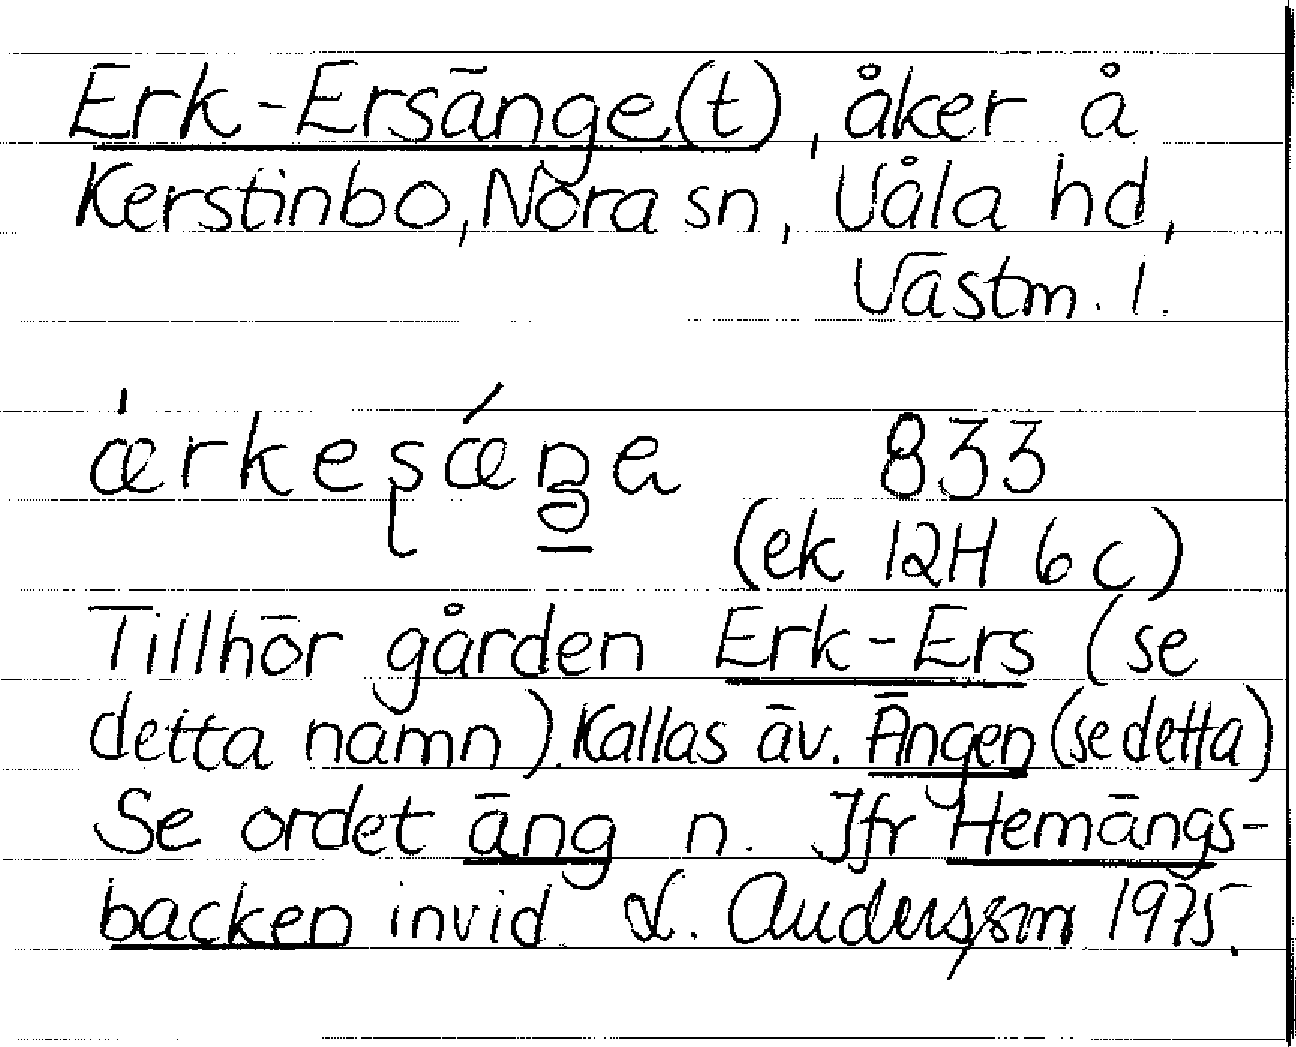 Erk-Ersänge(t), åker å
Kerstinbo, Nora sn, Våla hd,
Västm. l.
ærkesæŋe 833
(ek 12H 6c)
Tillhör gården Erk-Ers (se
detta namn). Kallas äv. Ängen (se detta)
Se ordet äng n. Jfr Hemängs-
backen invid. L. Andersson 1975.